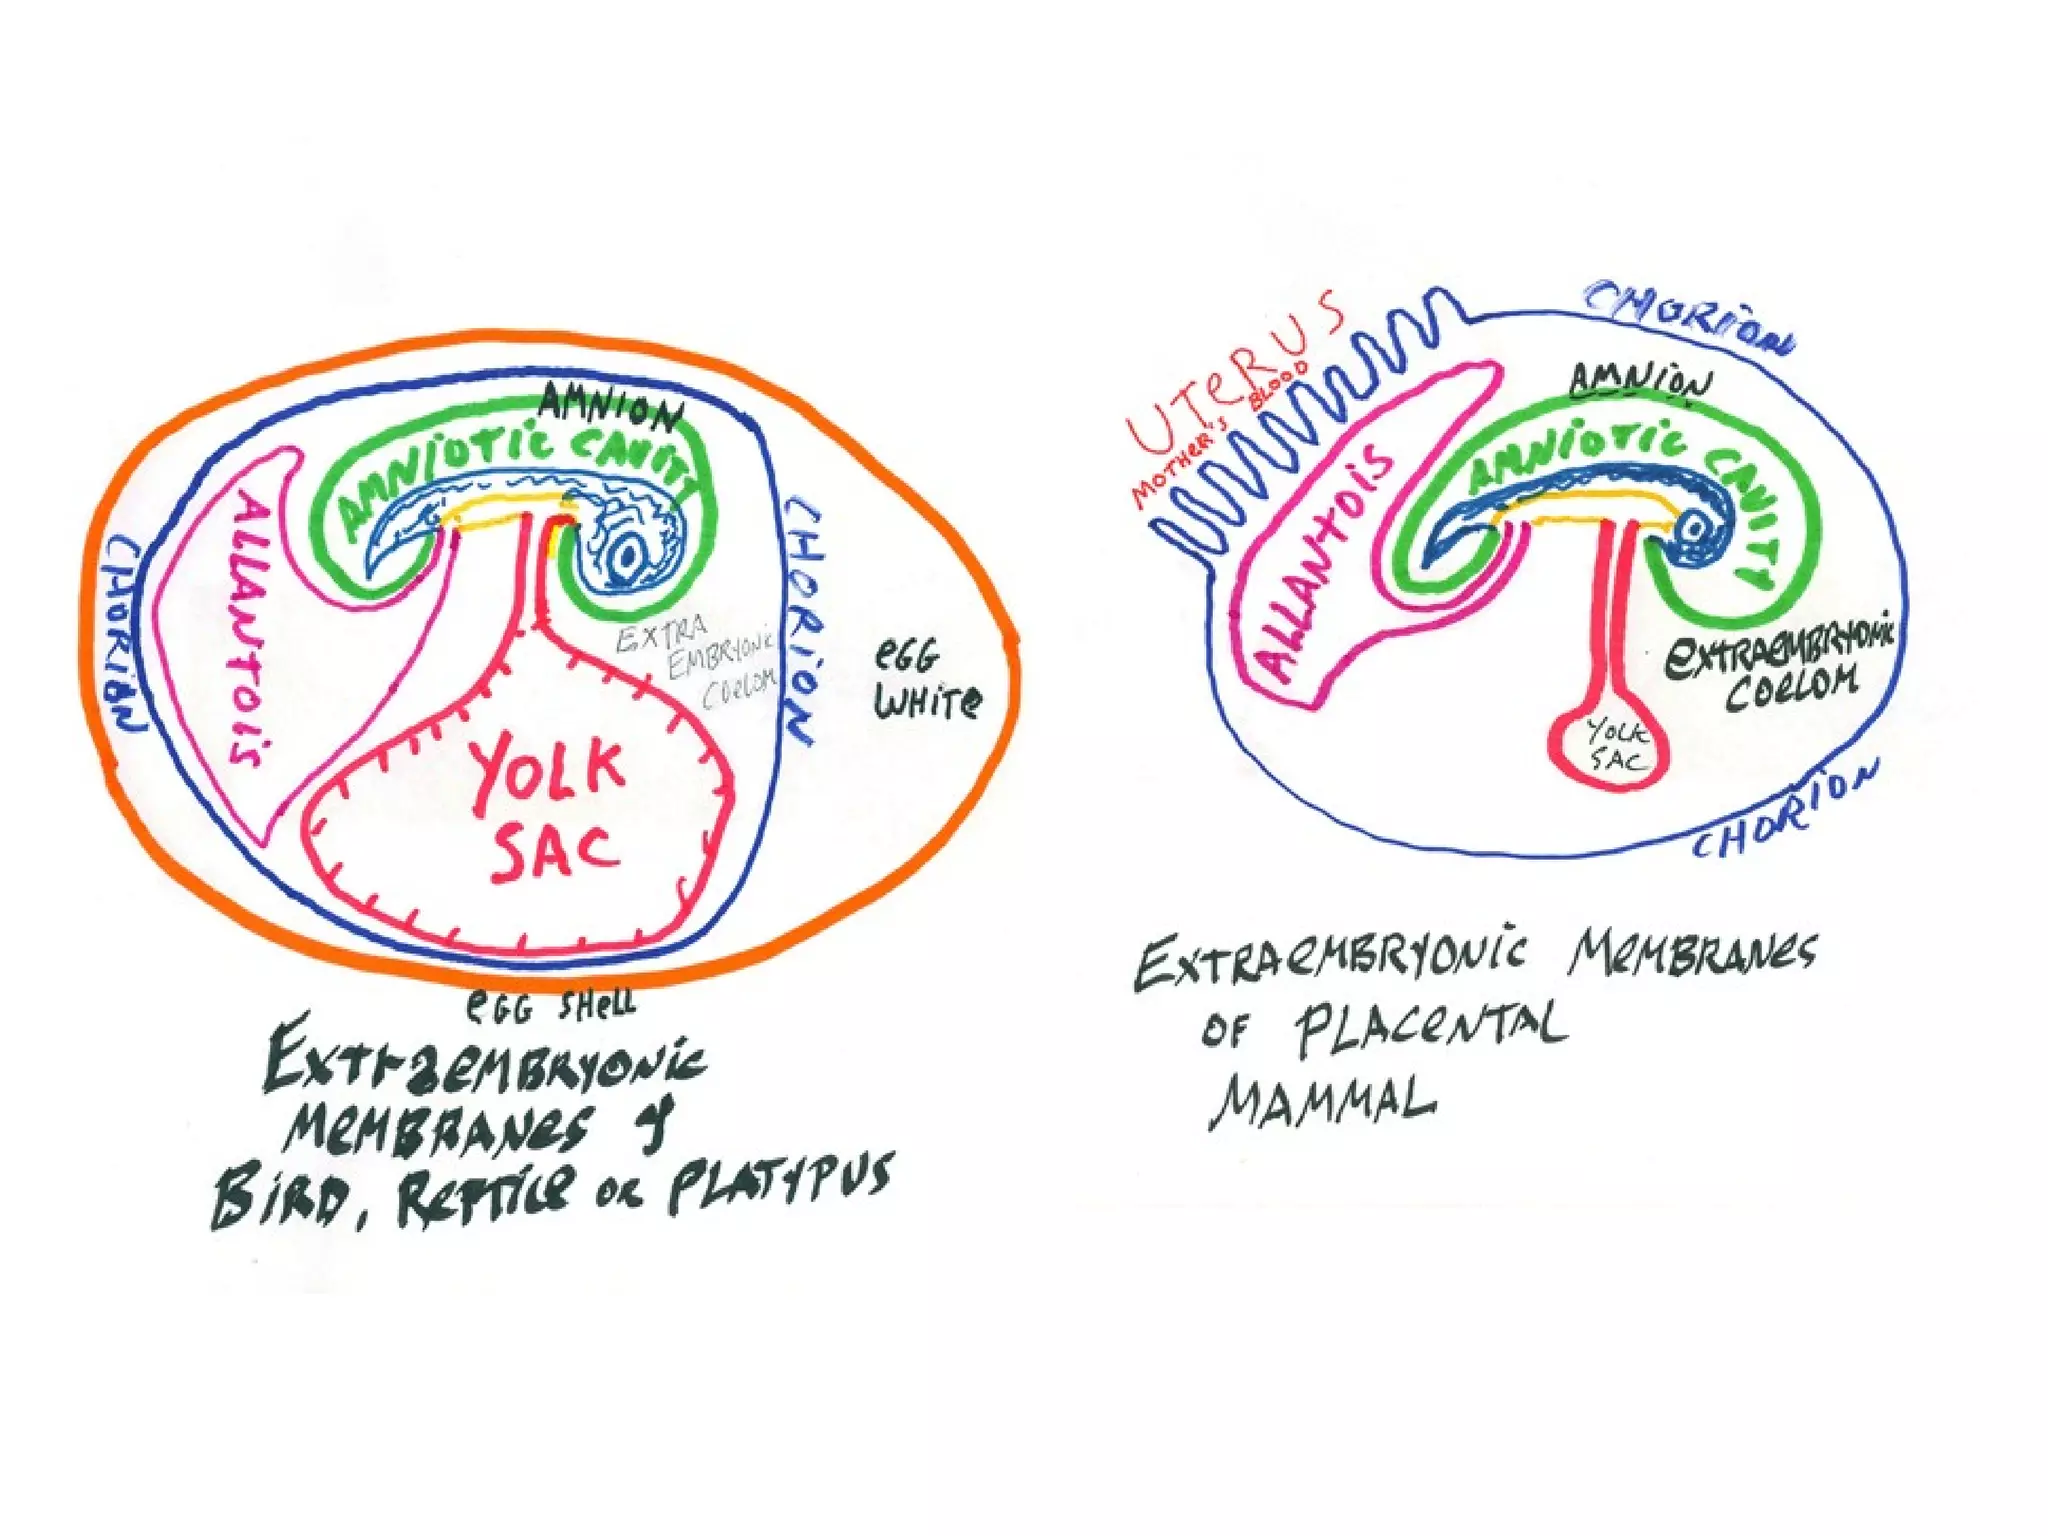 AMNION
AMNIOTIC CAVITY
ALLANTOIS
CHORION
CHORION
EXTRA
EMBRYONIC
COELOM
EGG
WHITE
YOLK
SAC
EGG SHELL
EXTRAEMBRYONIC
MEMBRANES of
BIRD, REPTILE OR PLATYPUS
UTERUS
MOTHER'S BLOOD
CHORION
AMNION
AMNIOTIC CAVITY
ALLANTOIS
EXTRAEMBRYONIC
COELOM
YOLK
SAC
CHORION
EXTRAEMBRYONIC MEMBRANES
OF PLACENTAL
MAMMAL